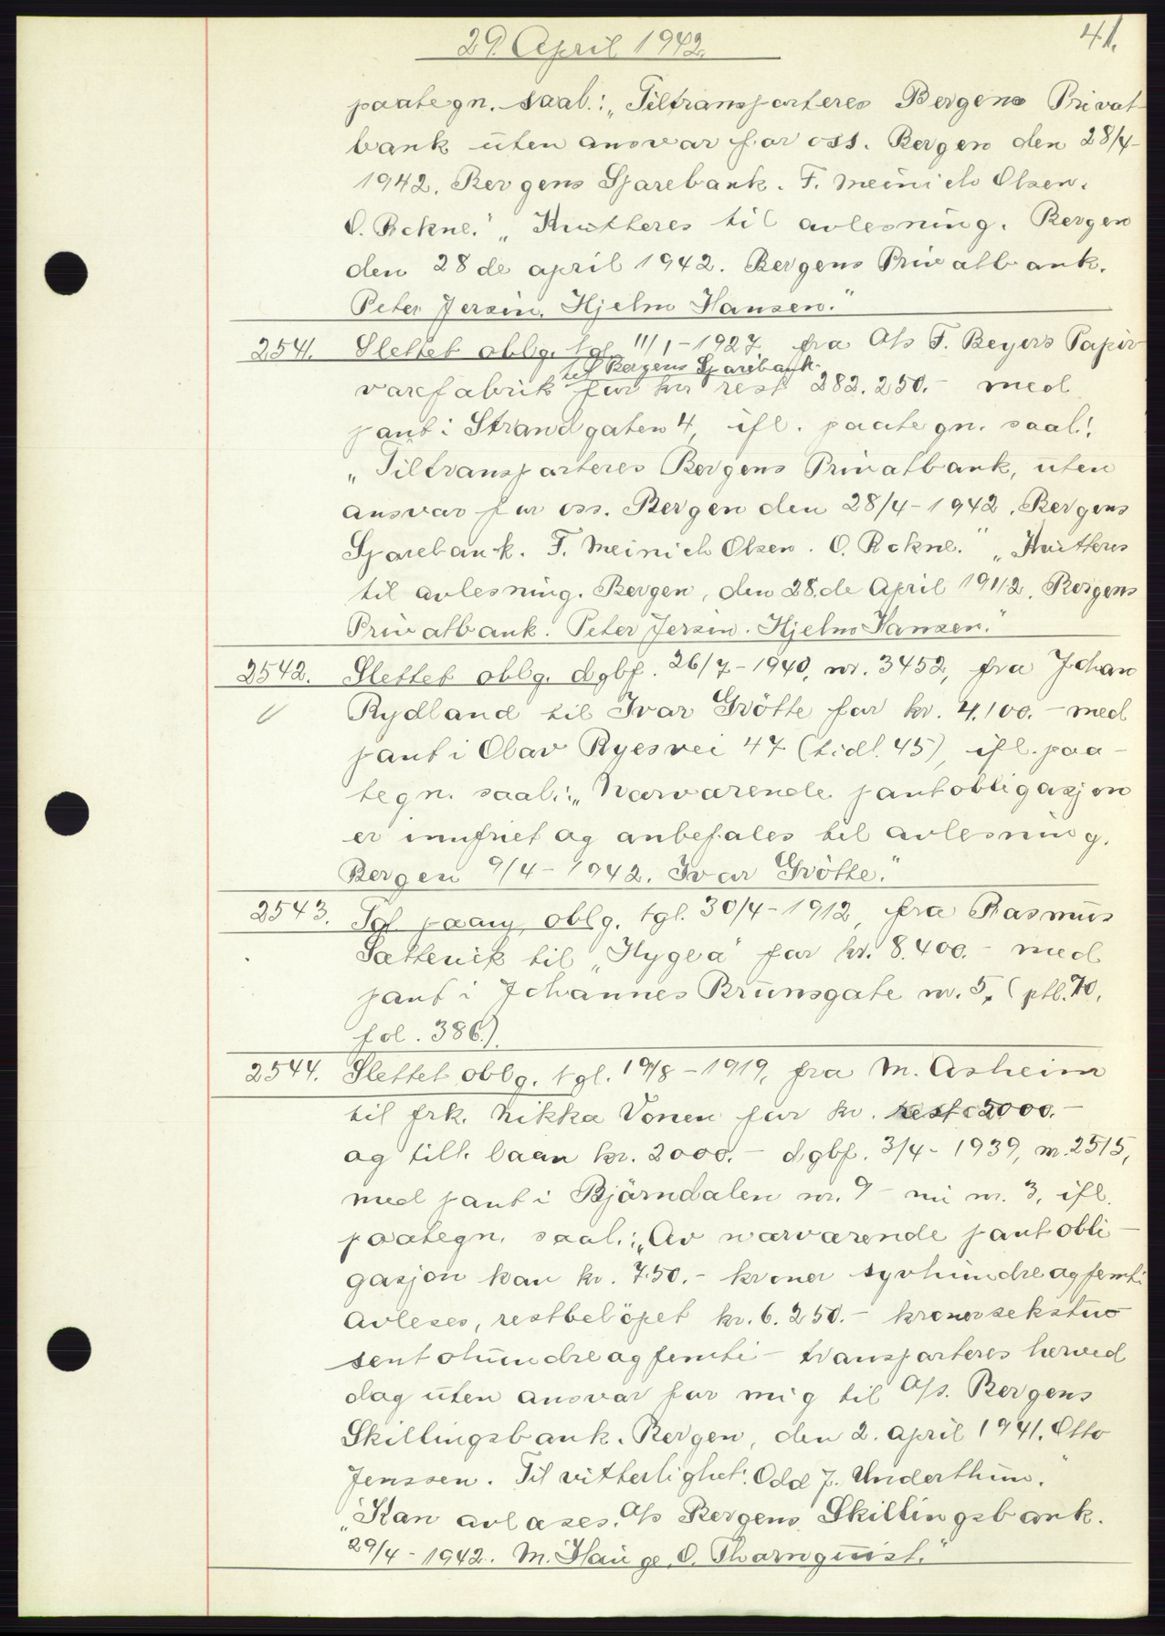 29. April 1942.
41.
paategn. saal.: „Tiltransporteres Bergens Privat-
bank uten ansvar for oss. Bergen den 28/4-
1942. Bergens Sparebank. F. Meinich Olsen.
O. Rekne." „Kvitteres til avlesning. Bergen
den 28de april 1942. Bergens Privatbank.
Peter Jersin. Hjelm Hansen."
2541. Slettet oblg. tgl. 11/1-1927 fra A/s F. Beyers Papir
til Bergens Sparebank
varefabrik for kr rest 282.250.- med
pant i Strandgaten 4, ifl. paategn. saal.:
„Tiltransporteres Bergens Privatbank, uten
ansvar for oss. Bergen den 28/4-1942. Bergens
Sparebank. F. Meinich Olsen. O. Rekne." „Kvitteres
til avlesning. Bergen, den 28.de April 1942. Bergens
Privatbank. Peter Jersin. Hjelm Hansen."
2542. Slettet oblg. dgbf. 26/7-1940, nr. 3452, fra Johan
Rydland til Ivar Grötte for kr. 4.100.- med
pant i Olav Ryesvei 47 (tidl. 45), ifl. paa-
tegn. saal.: „Nærværende pantobligasjon
er innfriet og anbefales til avlesning.
Bergen 9/4-1942. Ivar Grötte."
2543. Tgl. paany oblg. tgl. 30/4-1912, fra Rasmus
Sættevik til „Hygea" for kr. 8.400.- med
pant i Johannes Brunsgate nr. 5. (ptl. 70,
fol. 386.).
2544. Slettet oblg. tgl. 19/8-1919, fra M. Asheim
til frk. Nikka Vonen for kr. rest 5000.-
og till. laan kr. 2000.- dgbf. 3/4-1939, nr. 2515,
med pant i Bjørndalen nr. 9 - nu nr. 3, ifl.
paategn. saal.: „Av nærværende pantobli-
gasjon kan kr. 750.- kroner syvhundreogfemti
avleses, restbelöpet kr. 6.250.- kroner sekstu-
sentohundreogfemti - transporteres herved
dag uten ansvar for mig til A/s. Bergens
Skillingsbank. Bergen, den 2. april 1941. Otto
Jenssen. Til vitterlighet: Odd J. Underthun."
„Kan avlæses. A/s Bergens Skillingsbank.
29/4-1942. M. Hauge. O. Thornquist."